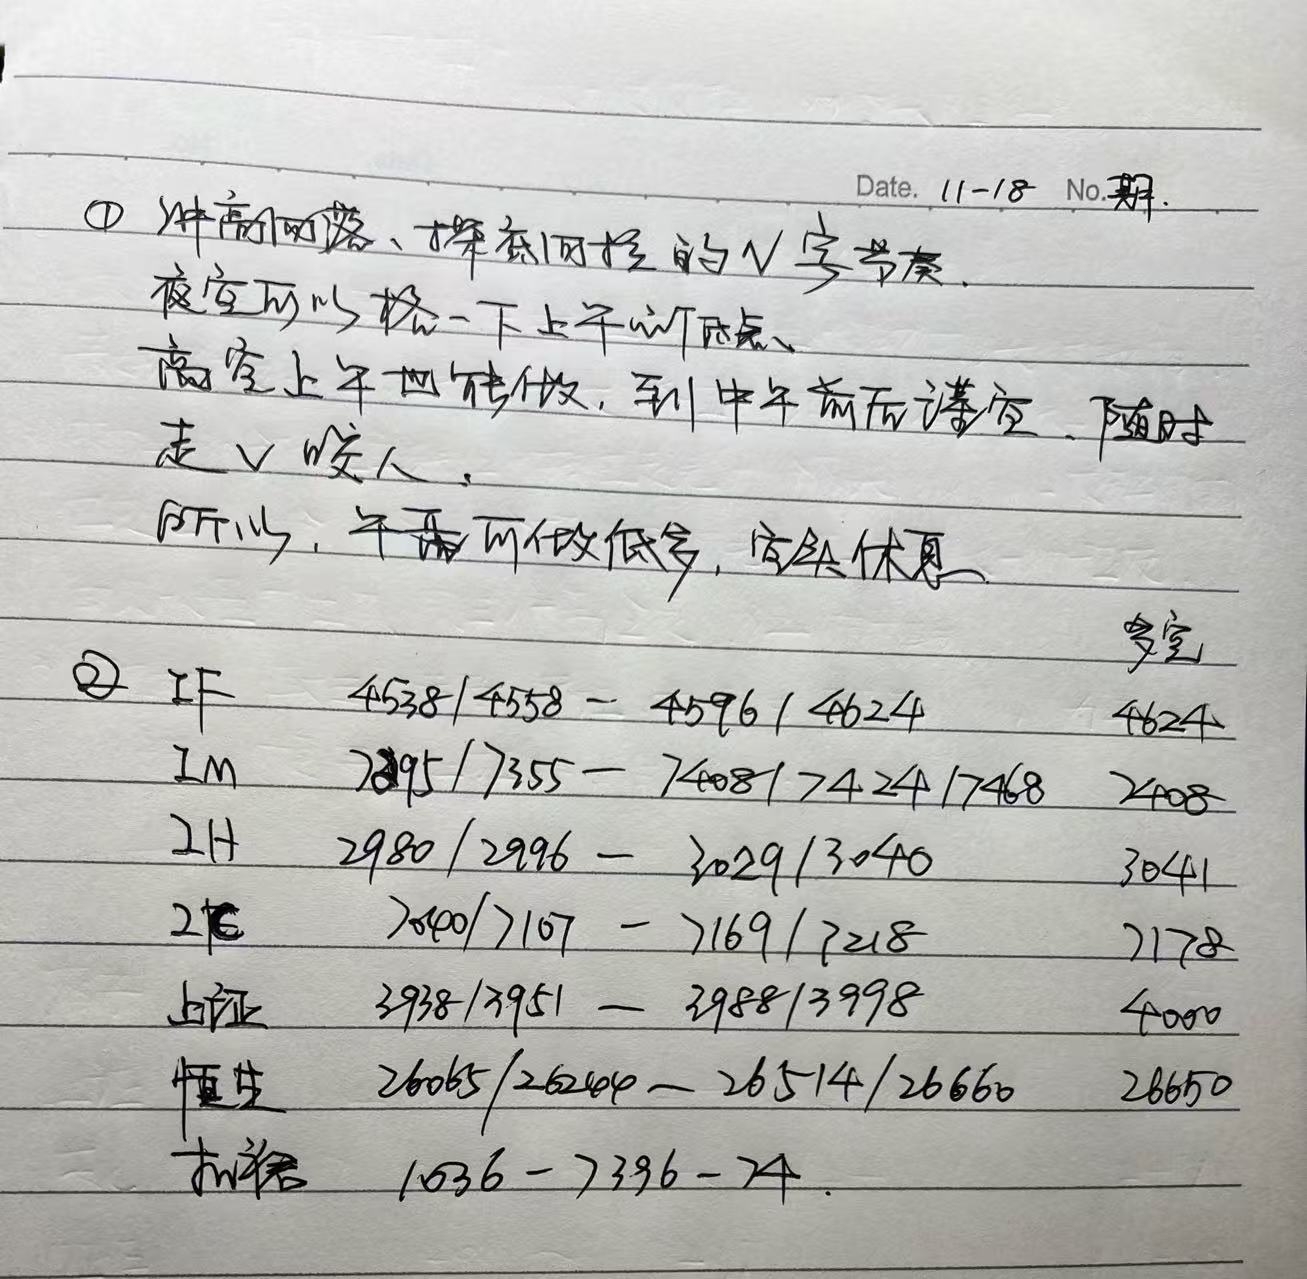 Date. 11-18 No. 期.
① 冲高回落、探底回拉的V字节奏.
夜空可以格一下上午新低点、
高空上午也能做, 到中午前后谨空、随时
走V咬人.
所以, 午后可做低多, 空头休息
多空
② IF 4538/4558 - 4596/4624 4624
IM 7295/7355 - 7408/7424/7468 7408
IH 2980/2996 - 3029/3040 3041
IC 7040/7107 - 7169/7218 7178
上证 3938/3951 - 3988/3998 4000
恒生 26065/26244 - 26514/26660 26650
1636 - 7396 - 74.